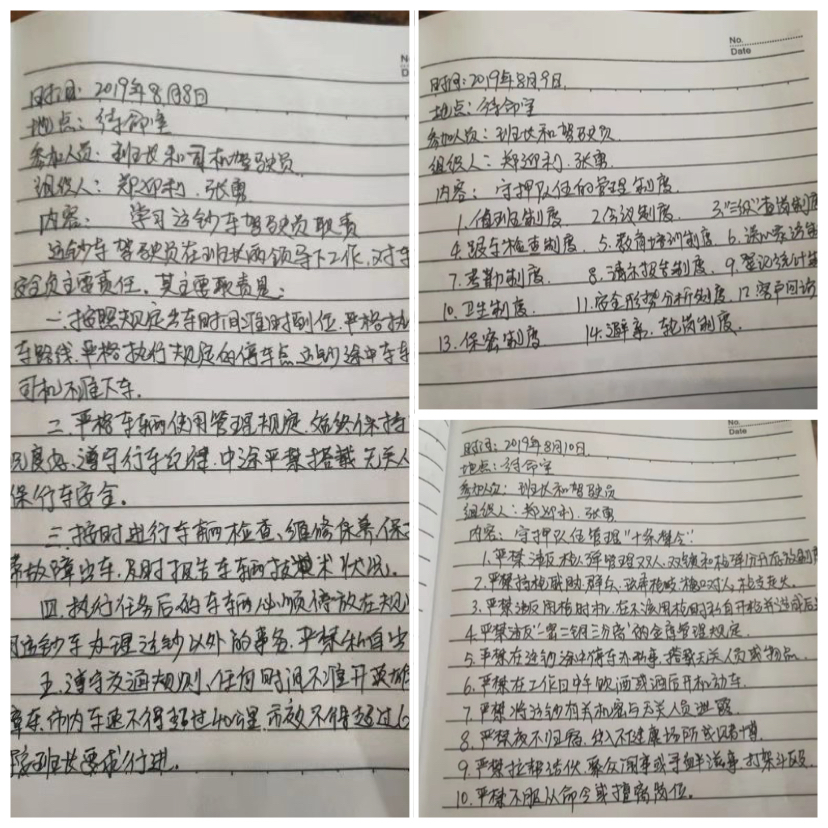 时间：2019年8月8日
地点：待命室
参加人员：班长和司机驾驶员
组织人：郑迎利、张勇
内容： 学习运钞车驾驶员职责
运钞车驾驶员在班长的领导下工作，对车
安全负主要责任。其主要职责是：
一、按照规定出车时间准时到位，严格执
车路线，严格执行规定的停车点，运钞途中车
司机不准下车。
二、严格车辆使用管理规定，始终保持
遵守行车纪律，中途严禁搭载无关人
保行车安全。
三、按时进行车辆检查、维修保养，保
带故障出车，及时报告车辆技术状况。
四、执行任务后的车辆必须停放在规
用运钞车办理运钞以外的事务，严禁私自出
五、遵守交通规则，任何时间不准开英雄
车，市内车速不得超过40公里，市效不得超过6
班长要求行进。
No.
Date
时间：2019年8月9日
地点：待命室
参加人员：班长和驾驶员
组织人：郑迎利、张勇
内容： 守押队伍的管理制度
1.值班制度 2.会议制度 3."三级"查岗制度
4.跟车检查制度 5.教育培训制度 6.谈心家访
7.考勤制度 8.请示报告制度 9.登记统计
10.卫生制度 11.安全形势分析制度 12.客户回访
13.保密制度 14.避亲、轮岗制度
No.
Date
时间：2019年8月10日
地点：待命室
参加人员：班长和驾驶员
组织人：郑迎利、张勇
内容：守押队伍管理"十条禁令"
1.严禁违反枪、弹管理双人、双锁和枪弹分开存放制度
2.严禁持枪威胁群众，枪口对人，枪支走火
3.严禁违反用枪时机，在不该用枪时私自开枪并造成后
4.严禁违反"一零二钥三分离"的金库管理规定
5.严禁在运钞途中停车办私事，搭载无关人员或物品
6.严禁在工作日中午饮酒或酒后开机动车
7.严禁将运钞有关机密与无关人员泄露
8.严禁夜不归宿，出入不健康场所或赌博
9.严禁拉帮结伙，聚众闹事或寻衅滋事，打架斗殴
10.严禁不服从命令或擅离岗位。